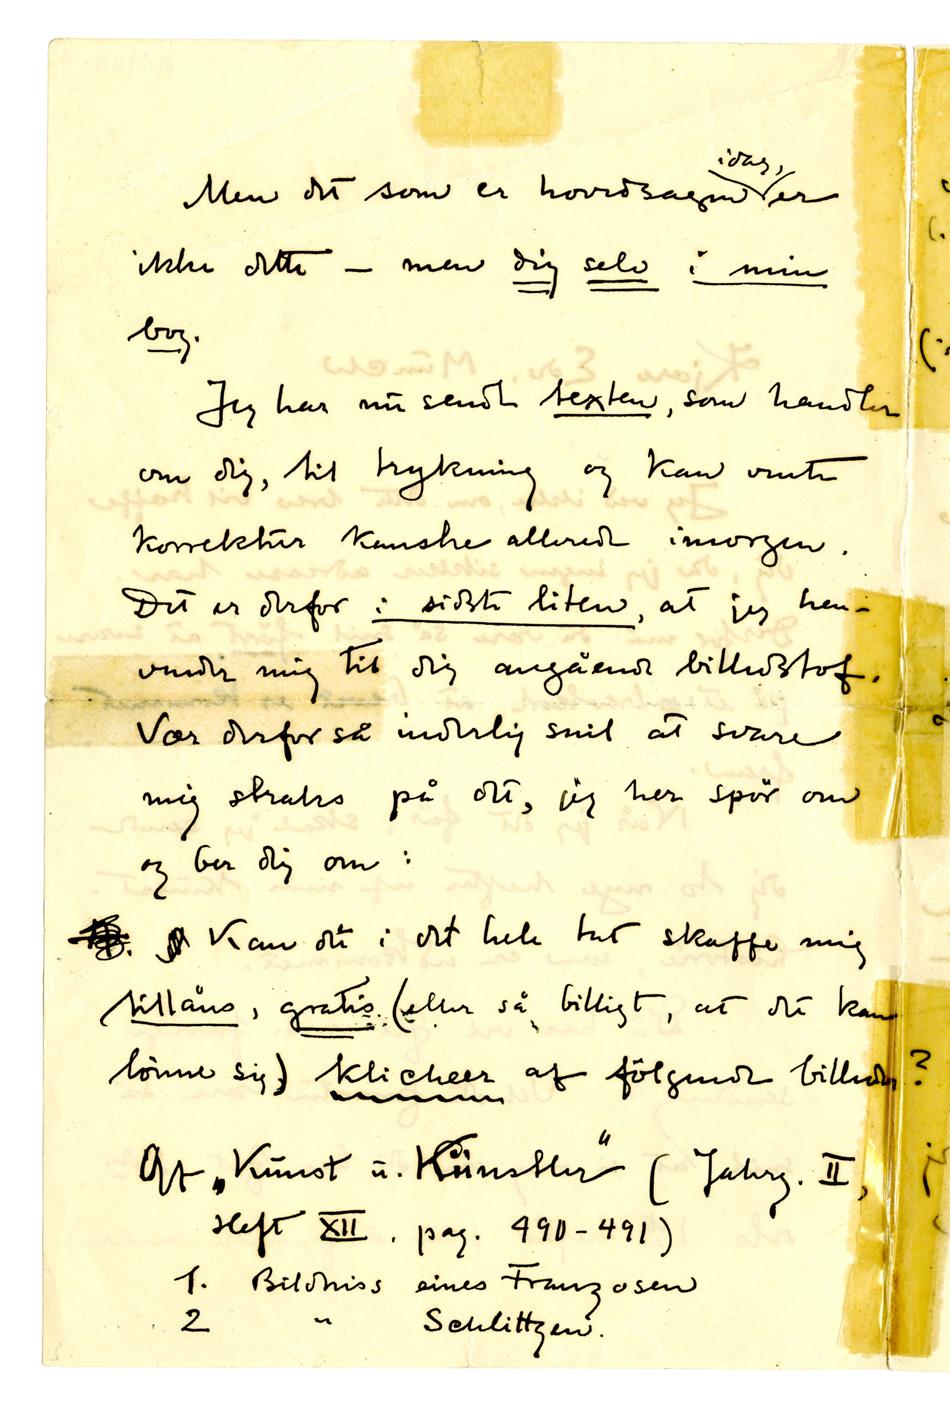 Men det som er hovedsagen idag, er
ikke dette – men dig selv i min
bog.
Jeg har nu sendt texten, som handler
om dig, til trykning og kan vente
korrektur kanske allerede imorgen.
Det er derfor i sidste liten, at jeg hen-
vender mig til dig angående billedstof.
Vær derfor så inderlig snil at svare
mig straks på det, jeg her spör om
og ber dig om:
Kan du i det hele tat skaffe mig
tillåns, gratis (eller så billigt, at det kan
lönne sig) klicheer af fölgende billeder?
Af „Kunst u. Künstler" (Jahrg. II,
Heft XII. pag. 490-491)
1. Bildniss eines Franzosen
2 " Schlittgen.